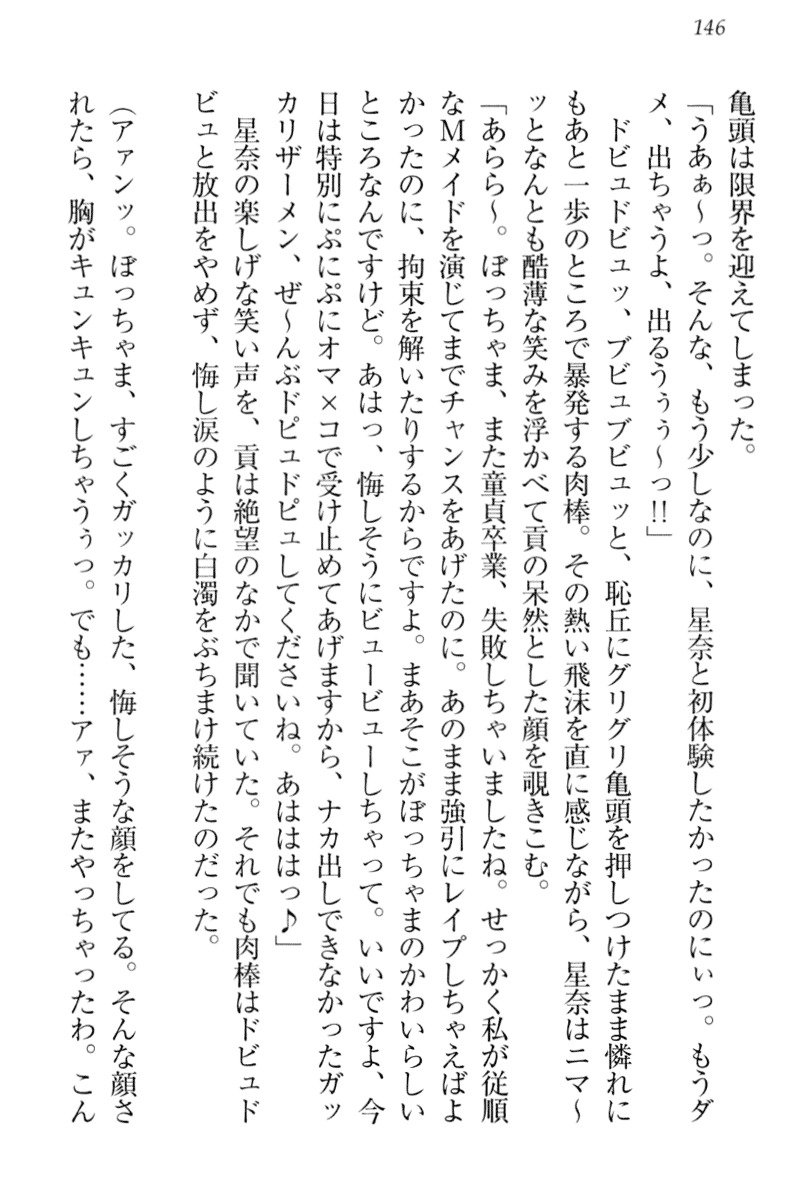 146
亀頭は限界を迎えてしまった。
「うあぁ～っ。そんな、もう少しなのに、星奈と初体験したかったのにぃっ。もうダ
メ、出ちゃうよ、出るうぅぅ～っ!!」
ドビュドビュッ、ブビュブビュッと、恥丘にグリグリ亀頭を押しつけたまま憐れに
もあと一歩のところで暴発する肉棒。その熱い飛沫を直に感じながら、星奈はニマ～
ッとなんとも酷薄な笑みを浮かべて貢の呆然とした顔を覗きこむ。
「あらら～。ぼっちゃま、また童貞卒業、失敗しちゃいましたね。せっかく私が従順
なMメイドを演じてまでチャンスをあげたのに。あのまま強引にレイプしちゃえばよ
かったのに、拘束を解いたりするからですよ。まあそこがぼっちゃまのかわいらしい
ところなんですけど。あはっ、悔しそうにビュービューしちゃって。いいですよ、今
日は特別にぷにぷにオマ×コで受け止めてあげますから、ナカ出しできなかったガッ
カリザーメン、ぜ～んぶドピュドピュしてくださいね。あはははっ♪」
星奈の楽しげな笑い声を、貢は絶望のなかで聞いていた。それでも肉棒はドビュド
ビュと放出をやめず、悔し涙のように白濁をぶちまけ続けたのだった。
（アァンッ。ぼっちゃま、すごくガッカリした、悔しそうな顔をしてる。そんな顔さ
れたら、胸がキュンキュンしちゃうぅっ。でも……アァ、またやっちゃったわ。こん